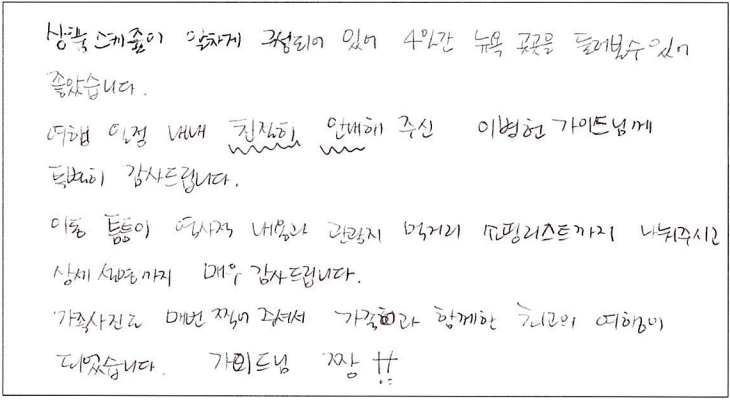 상품 스케쥴이 알차게 구성되어 있어 4일간 뉴욕 곳곳을 둘러볼수 있어
좋았습니다.
여행 일정 내내 친절히 안내해 주신 이병헌 가이드님께
특별히 감사드립니다.
이동 틈틈이 역사적 내용과 관광지 먹거리 쇼핑리스트까지 나눠주시고
상세 설명까지 매우 감사드립니다.
가족사진도 매번 찍어 주셔서 가족과 함께한 최고의 여행이
되었습니다. 가이드님 짱!!